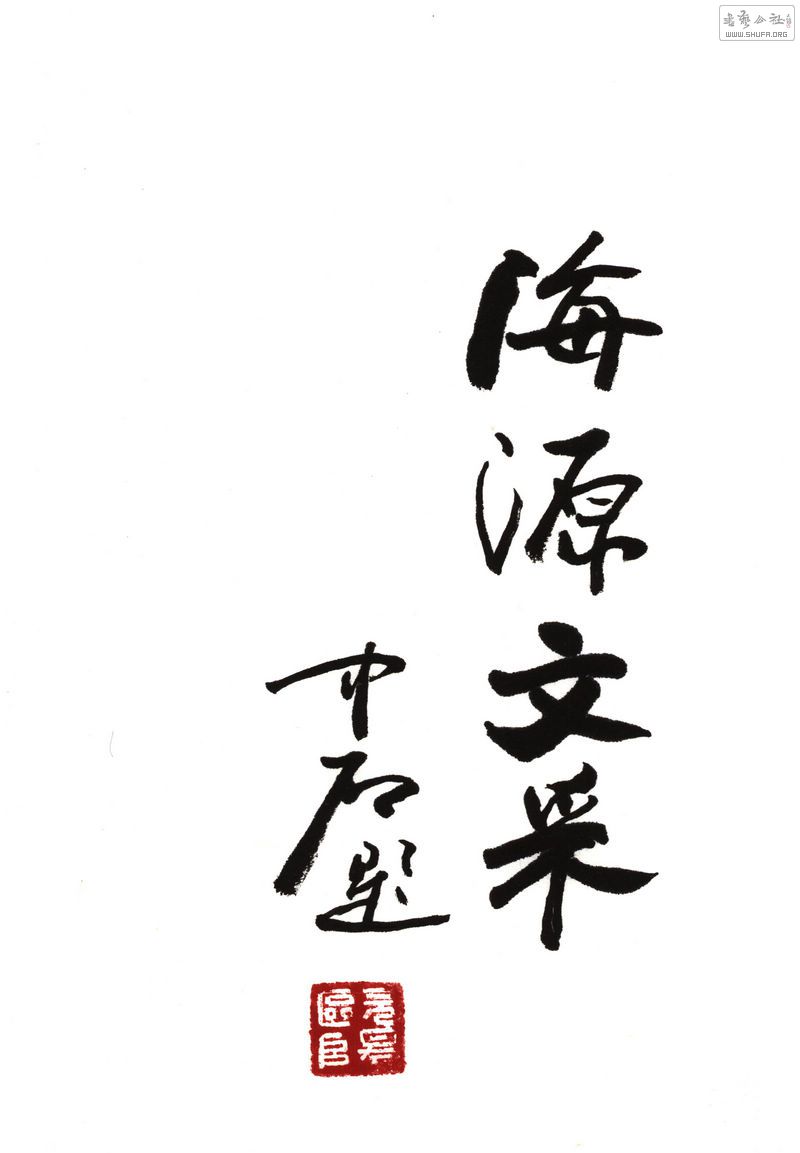 海源文采
中石题
書藝公社
WWW.SHUFA.ORG